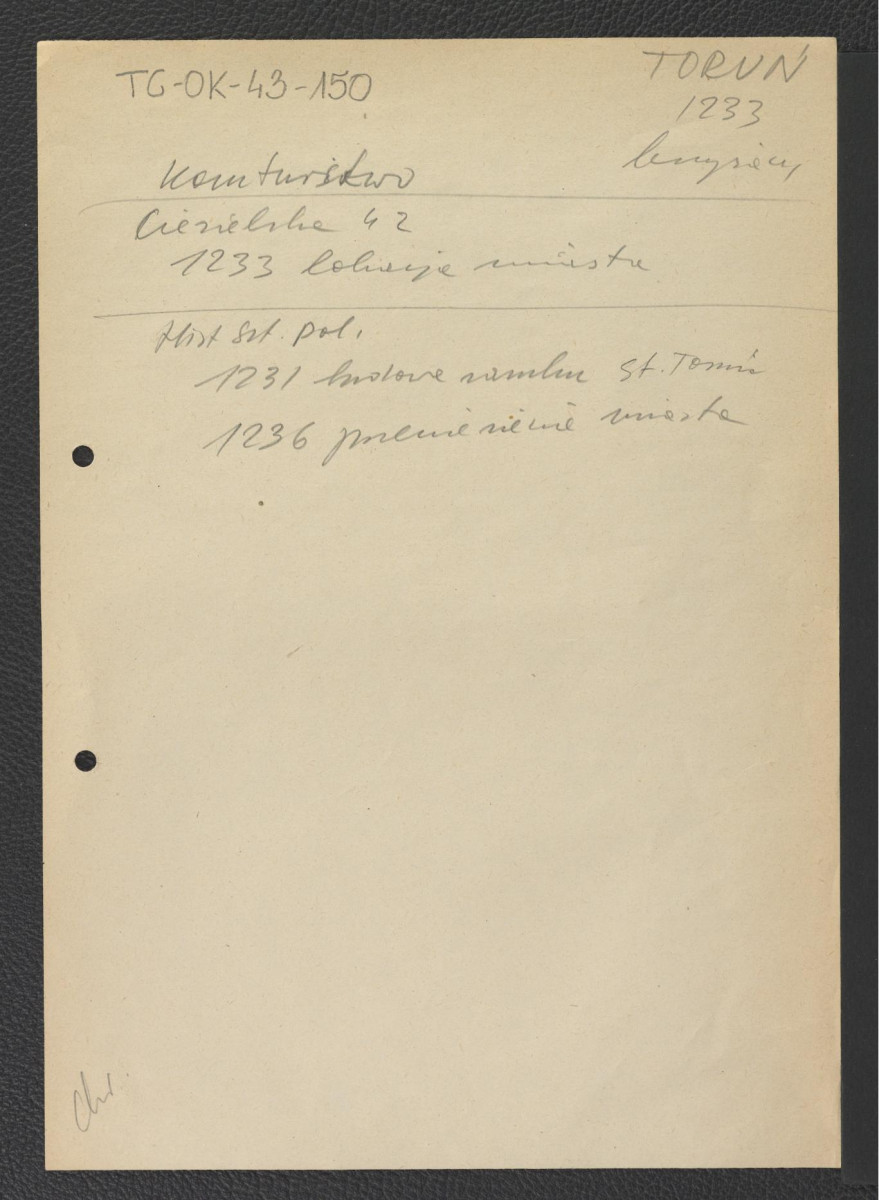 TG-OK-43-150
TORUŃ
1233
krzyżacy
Komturstwo
Ciesielska 42
1233 lokacja miasta
Hist Szt. Pol.
1231 budowa zamku St. Toruń
1236 przeniesienie miasta